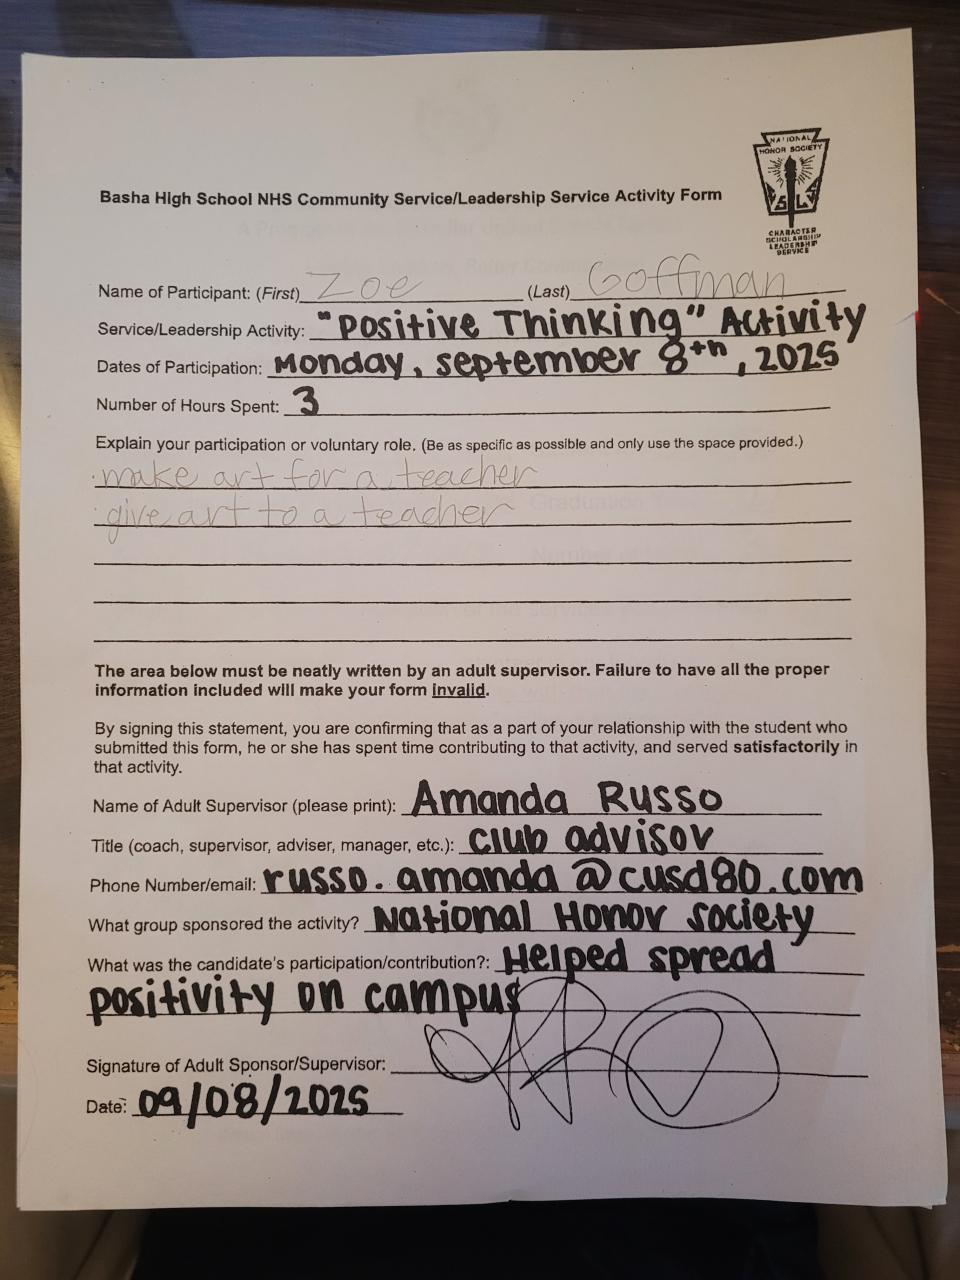 NATIONAL
HONOR SOCIETY
CHARACTER
SCHOLARSHIP
LEADERSHIP
SERVICE
Basha High School NHS Community Service/Leadership Service Activity Form
Name of Participant: (First) Zoe (Last) Goffman
Service/Leadership Activity: "Positive Thinking" Activity
Dates of Participation: Monday, september 8th, 2025
Number of Hours Spent: 3
Explain your participation or voluntary role. (Be as specific as possible and only use the space provided.)
· make art for a teacher
· give art to a teacher
The area below must be neatly written by an adult supervisor. Failure to have all the proper
information included will make your form invalid.
By signing this statement, you are confirming that as a part of your relationship with the student who
submitted this form, he or she has spent time contributing to that activity, and served satisfactorily in
that activity.
Name of Adult Supervisor (please print): Amanda Russo
Title (coach, supervisor, adviser, manager, etc.): club advisor
Phone Number/email: russo.amanda@cusd80.com
What group sponsored the activity? National Honor society
What was the candidate's participation/contribution?: Helped spread
positivity on campus
Signature of Adult Sponsor/Supervisor:
Date: 09/08/2025